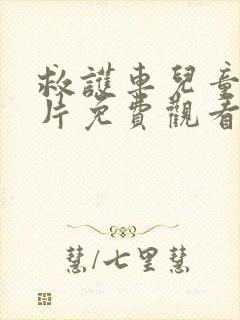 救護車兒童
片免費觀看
慧/七里慧